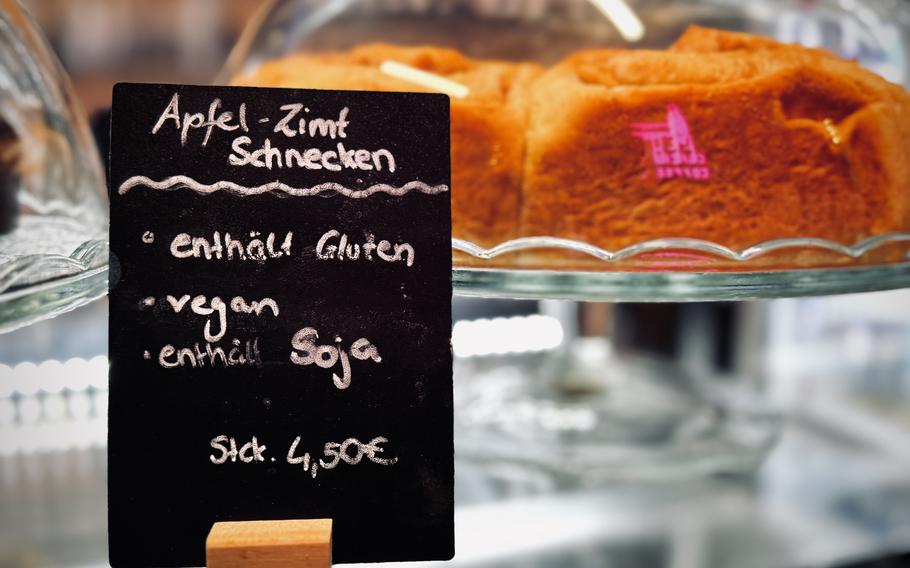 Apfel-Zimt
Schnecken
° enthält Gluten
· vegan
· enthält Soja
Stck. 4,50€